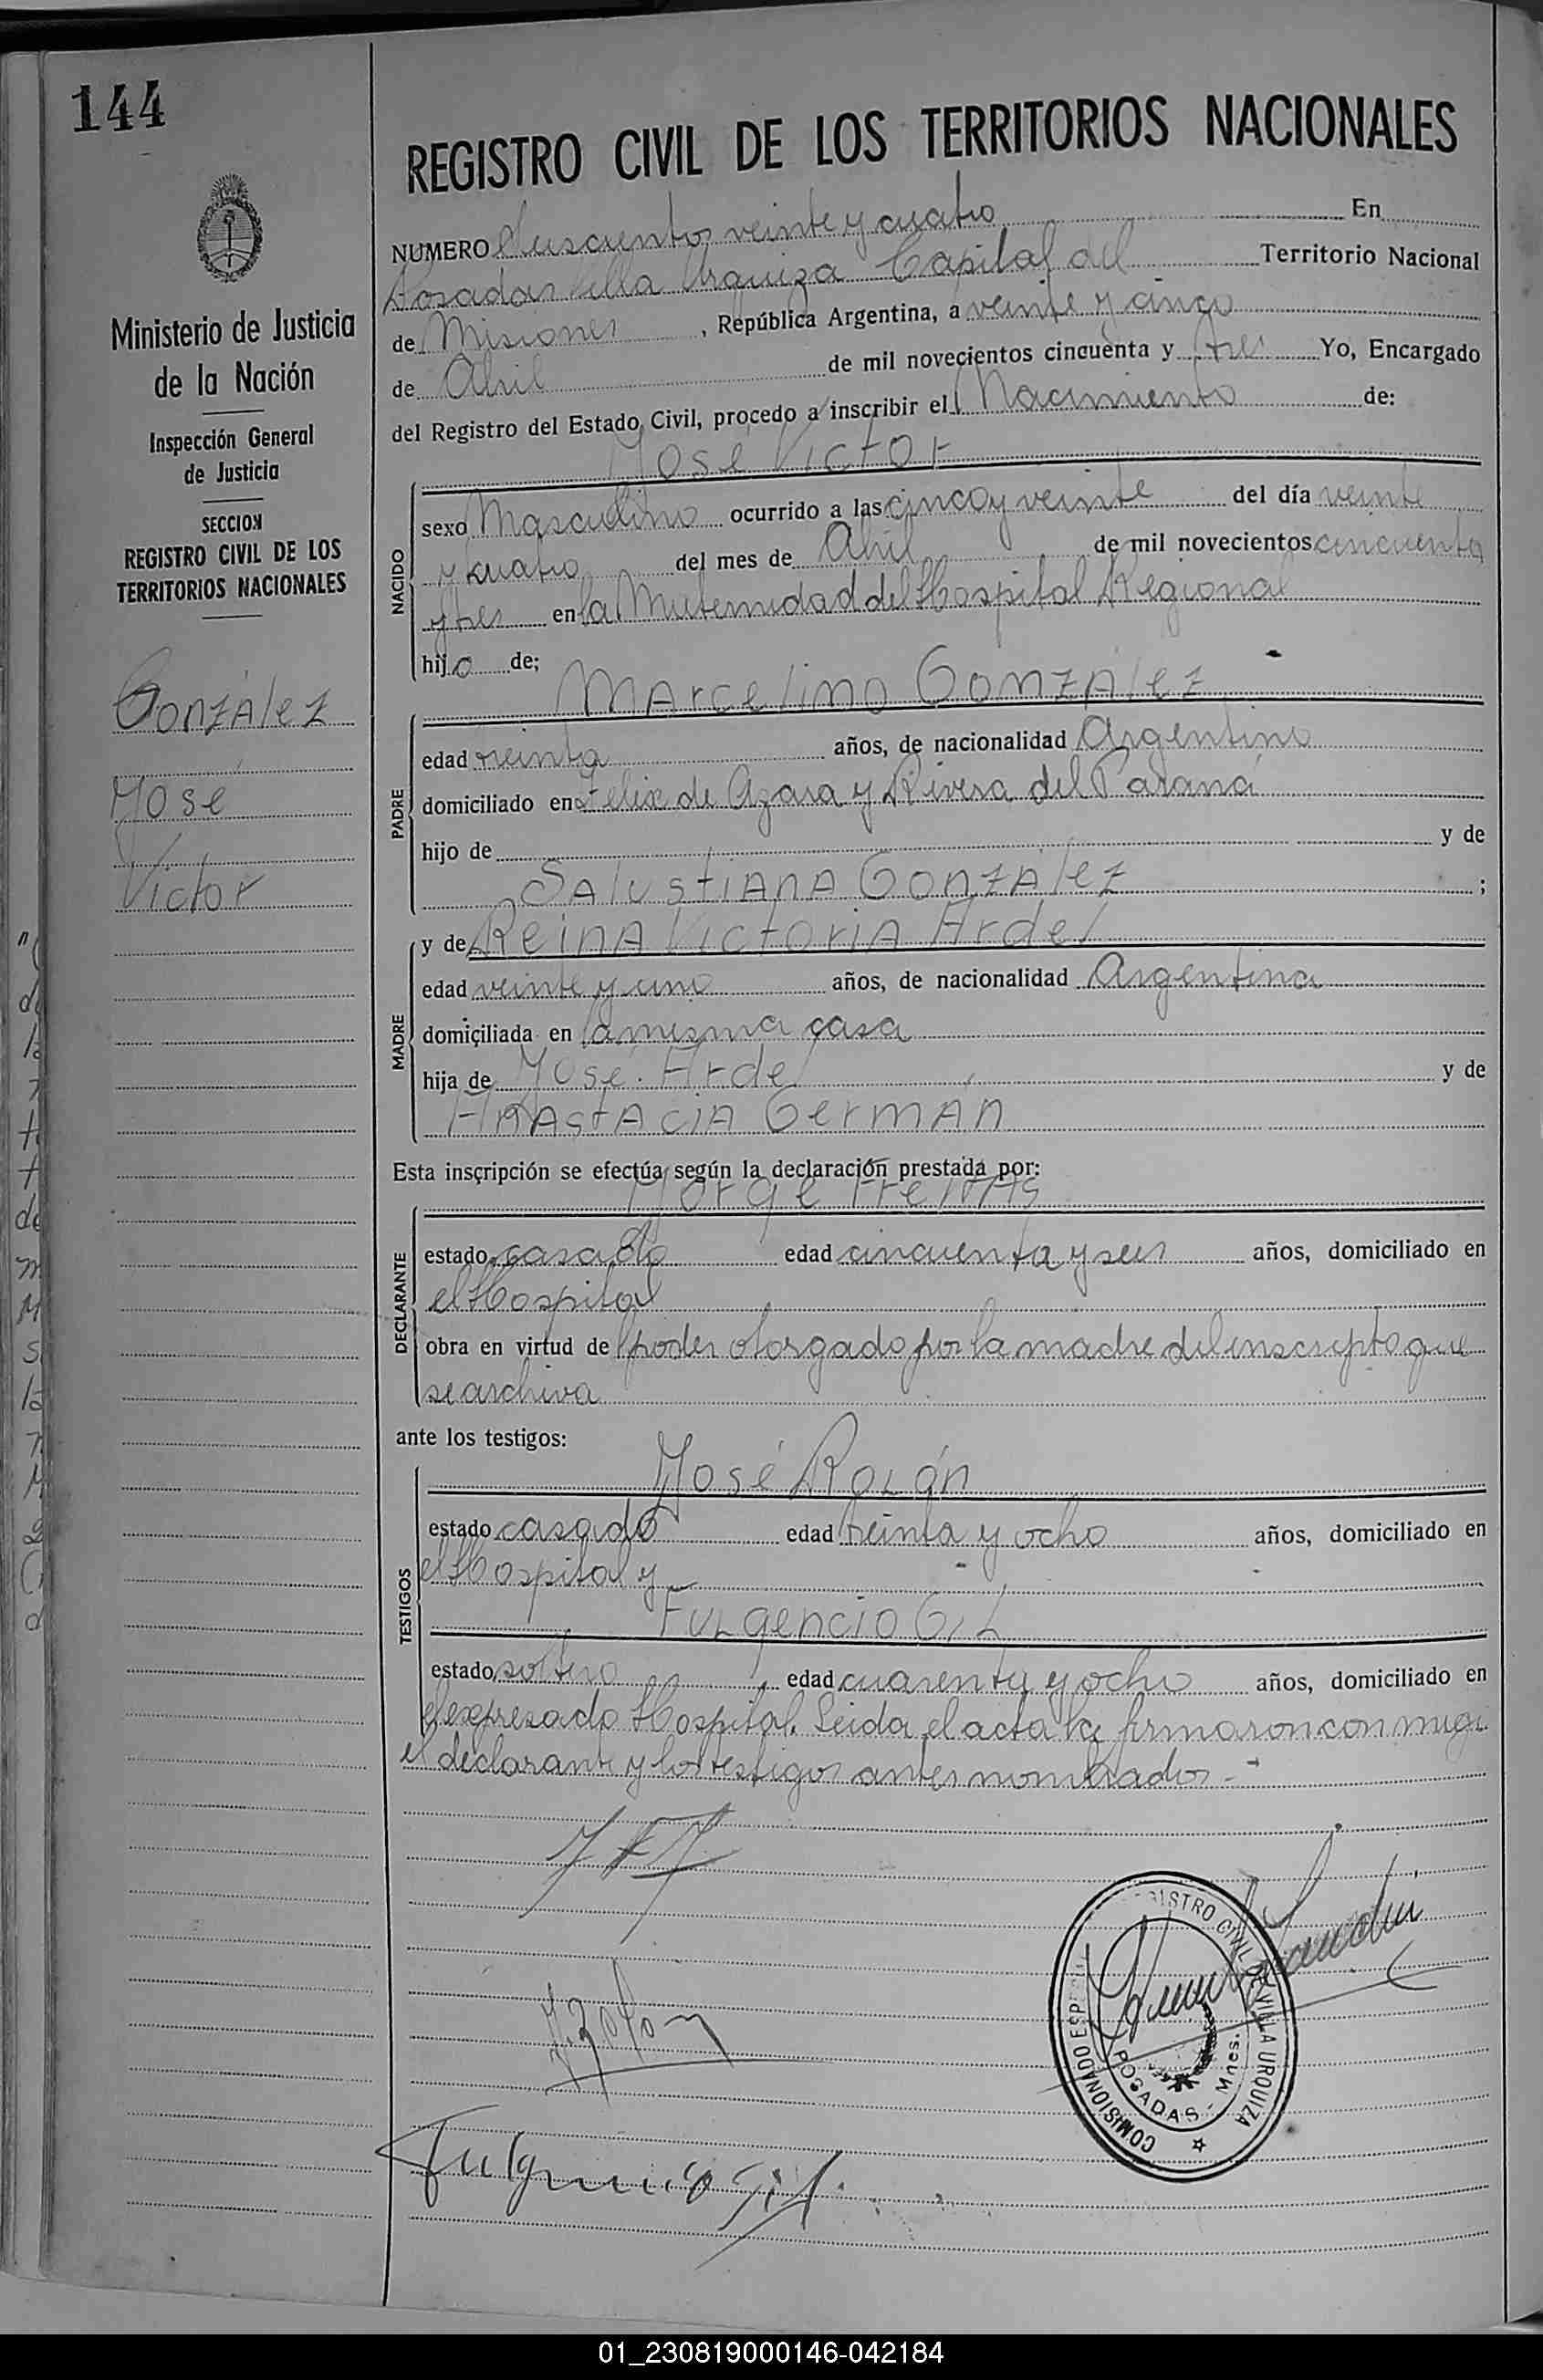 144
REGISTRO CIVIL DE LOS TERRITORIOS NACIONALES
Ministerio de Justicia
de la Nación
Inspección General
de Justicia
SECCION
REGISTRO CIVIL DE LOS
TERRITORIOS NACIONALES
González
José
Victor
NUMERO Duscientos veinte y cuatro En
Posadas Villa Urquiza Capital del Territorio Nacional
de Misiones, República Argentina, a veinte y cinco
de Abril de mil novecientos cincuenta y tres Yo, Encargado
del Registro del Estado Civil, procedo a inscribir el Nacimiento de:
José Victor
NACIDO
sexo Masculino ocurrido a las cinco y veinte del día veinte
y cuatro del mes de Abril de mil novecientos cincuenta
y tres en la Maternidad del Hospital Regional
hijo de;
Marcelino González
PADRE
edad treinta años, de nacionalidad Argentino
domiciliado en Felix de Azara y Rivera del Paraná
hijo de y de
Salustiana González ;
MADRE
y de Reina Victoria Ardel
edad veinte y uno años, de nacionalidad Argentina
domiciliada en la misma casa
hija de José Ardel y de
Anastacia Germán
Esta inscripción se efectúa según la declaración prestada por:
Jorge
DECLARANTE
estado casado edad cincuenta y seis años, domiciliado en
el Hospital
obra en virtud del poder otorgado por la madre del inscripto que
se archiva
ante los testigos:
José Rolón
TESTIGOS
estado casado edad treinta y ocho años, domiciliado en
el Hospital y
Fulgencio Gil
estado soltero edad cuarenta y ocho años, domiciliado en
el expresado Hospital. Leida el acta la firmaron conmigo
el declarante y los testigos antes nombrados.-
J. Rolon
Fulgencio Gil
REGISTRO CIVIL DE VILLA URQUIZA
COMISIONADO
POSADAS - Mnes.
01_230819000146-042184